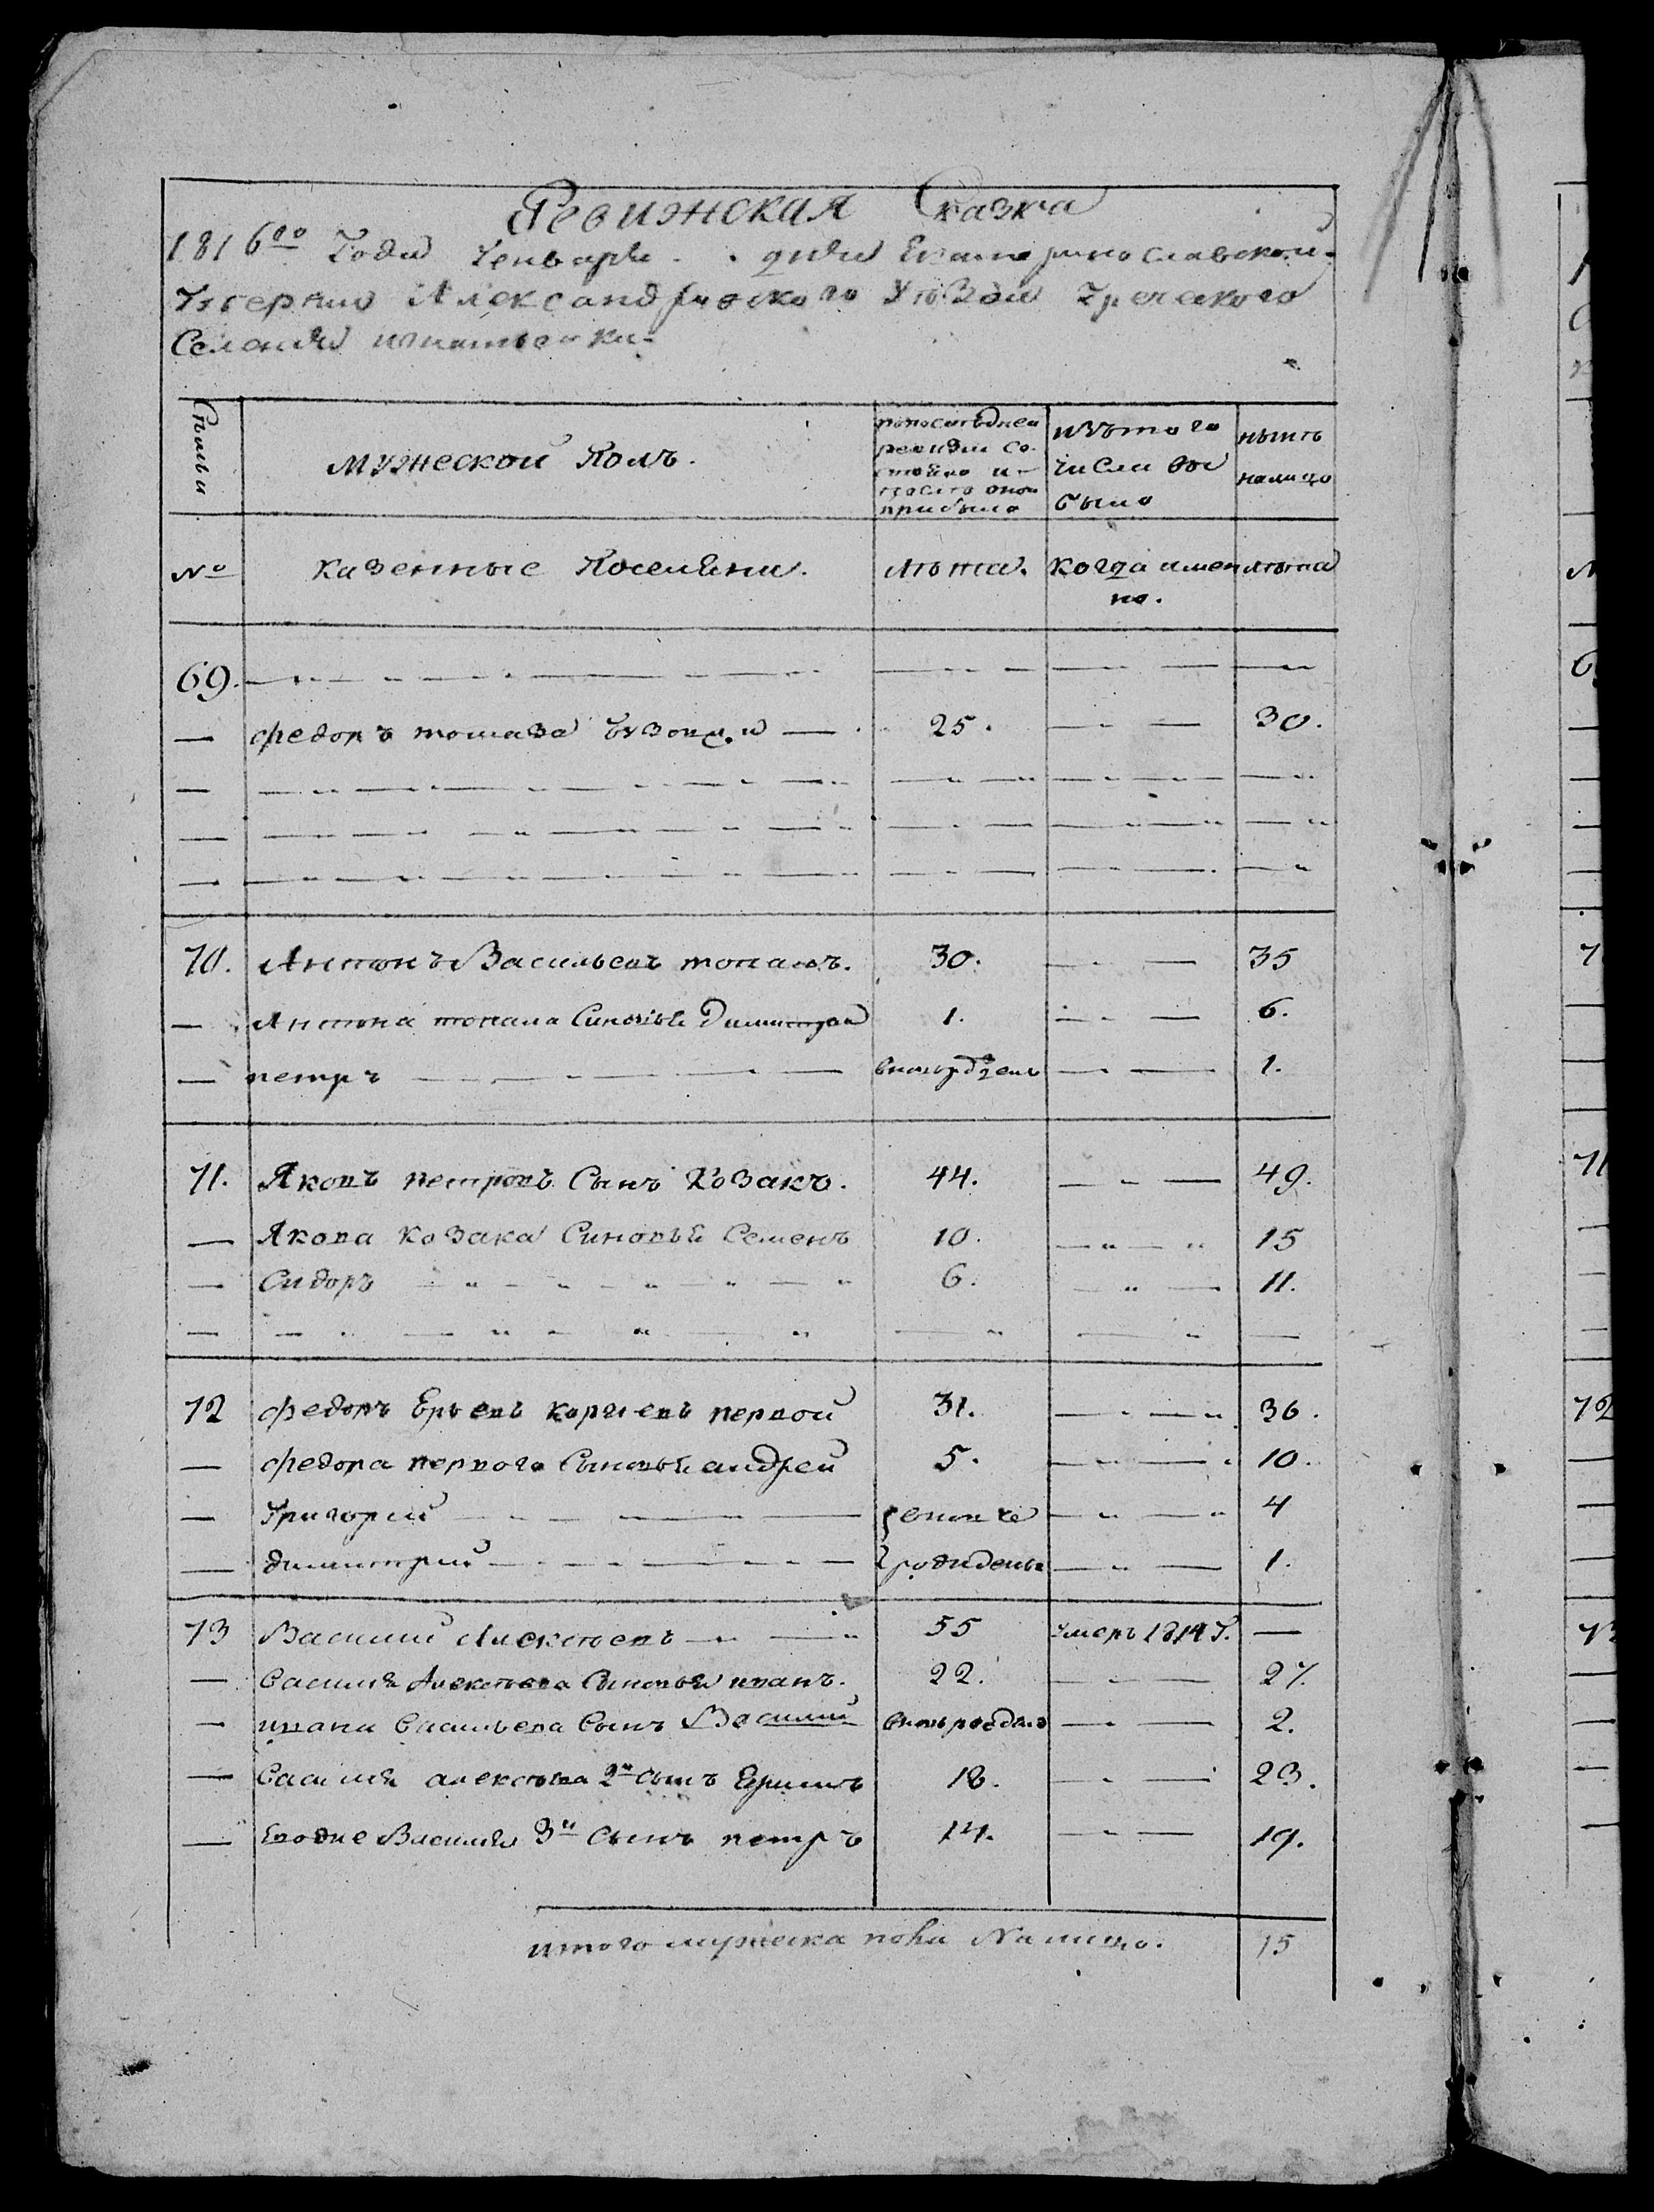 Ревижская Сказка
1816го Года Генваря дня Екатеринославской
Губернии Александровского Уезда Греческого
Селения игнатьевки
Семьи
мужеской Полъ.
попоследней ревизии состояло и после оной прибыло
изътого числа выбыло
нынѣ налицо
№
казенные Поселяни.
лѣта.
когда именно.
лѣта
69.
— федоръ 25. 30.
70. Антонъ Васильевъ топалъ. 30. 35
— Антона топала Синовья Димитрий 1. 6.
— петръ 1.
71. Яковъ петровъ Сынъ Козакъ. 44. 49.
— Якова козака Синовья Семенъ 10. 15
— Сидоръ 6. 11.
72 федоръ первой 31. 36.
— федора первого Сыновья андрей 5. 10.
— Григорий 4
— димитрий 1.
73 Василий Алексеевъ 55 умеръ 1814 г. —
— василия Алексеева Синовья иванъ. 22. 27.
— ивана васильева Сынъ Василий 2.
— василия алексеева 2й сынъ 18. 23.
— Василия 3й Сынъ петръ 14. 19.
итого мужеска пола Налицо. 15